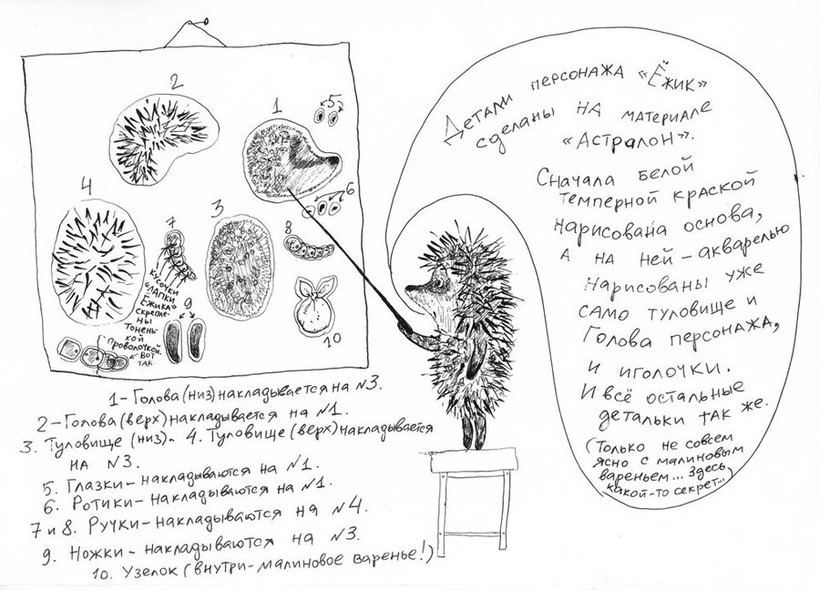 2
1
5
6
4
7
3
8
9
10
Кусочки
«Лапки
Ёжика»
скрепле-
ны
тонень-
кой
проволочкой.
Вот
так.
Детали персонажа «Ёжик»
сделаны на материале
«Астралон».
Сначала белой
темперной краской
нарисована основа,
а на ней – акварелью
нарисованы уже
само туловище и
голова персонажа,
и иголочки.
И всё остальные
детальки так же.
(Только не совсем
ясно с малиновым
вареньем... Здесь
какой-то секрет...)
1 – Голова (низ) накладывается на №3.
2 – Голова (верх) накладывается на №1.
3. Туловище (низ) – 4. Туловище (верх) накладывается
на №3.
5. Глазки – накладываются на №1.
6. Ротики – накладываются на №1.
7 и 8. Ручки – накладываются на №4.
9. Ножки – накладываются на №3.
10. Узелок (внутри – малиновое варенье!)